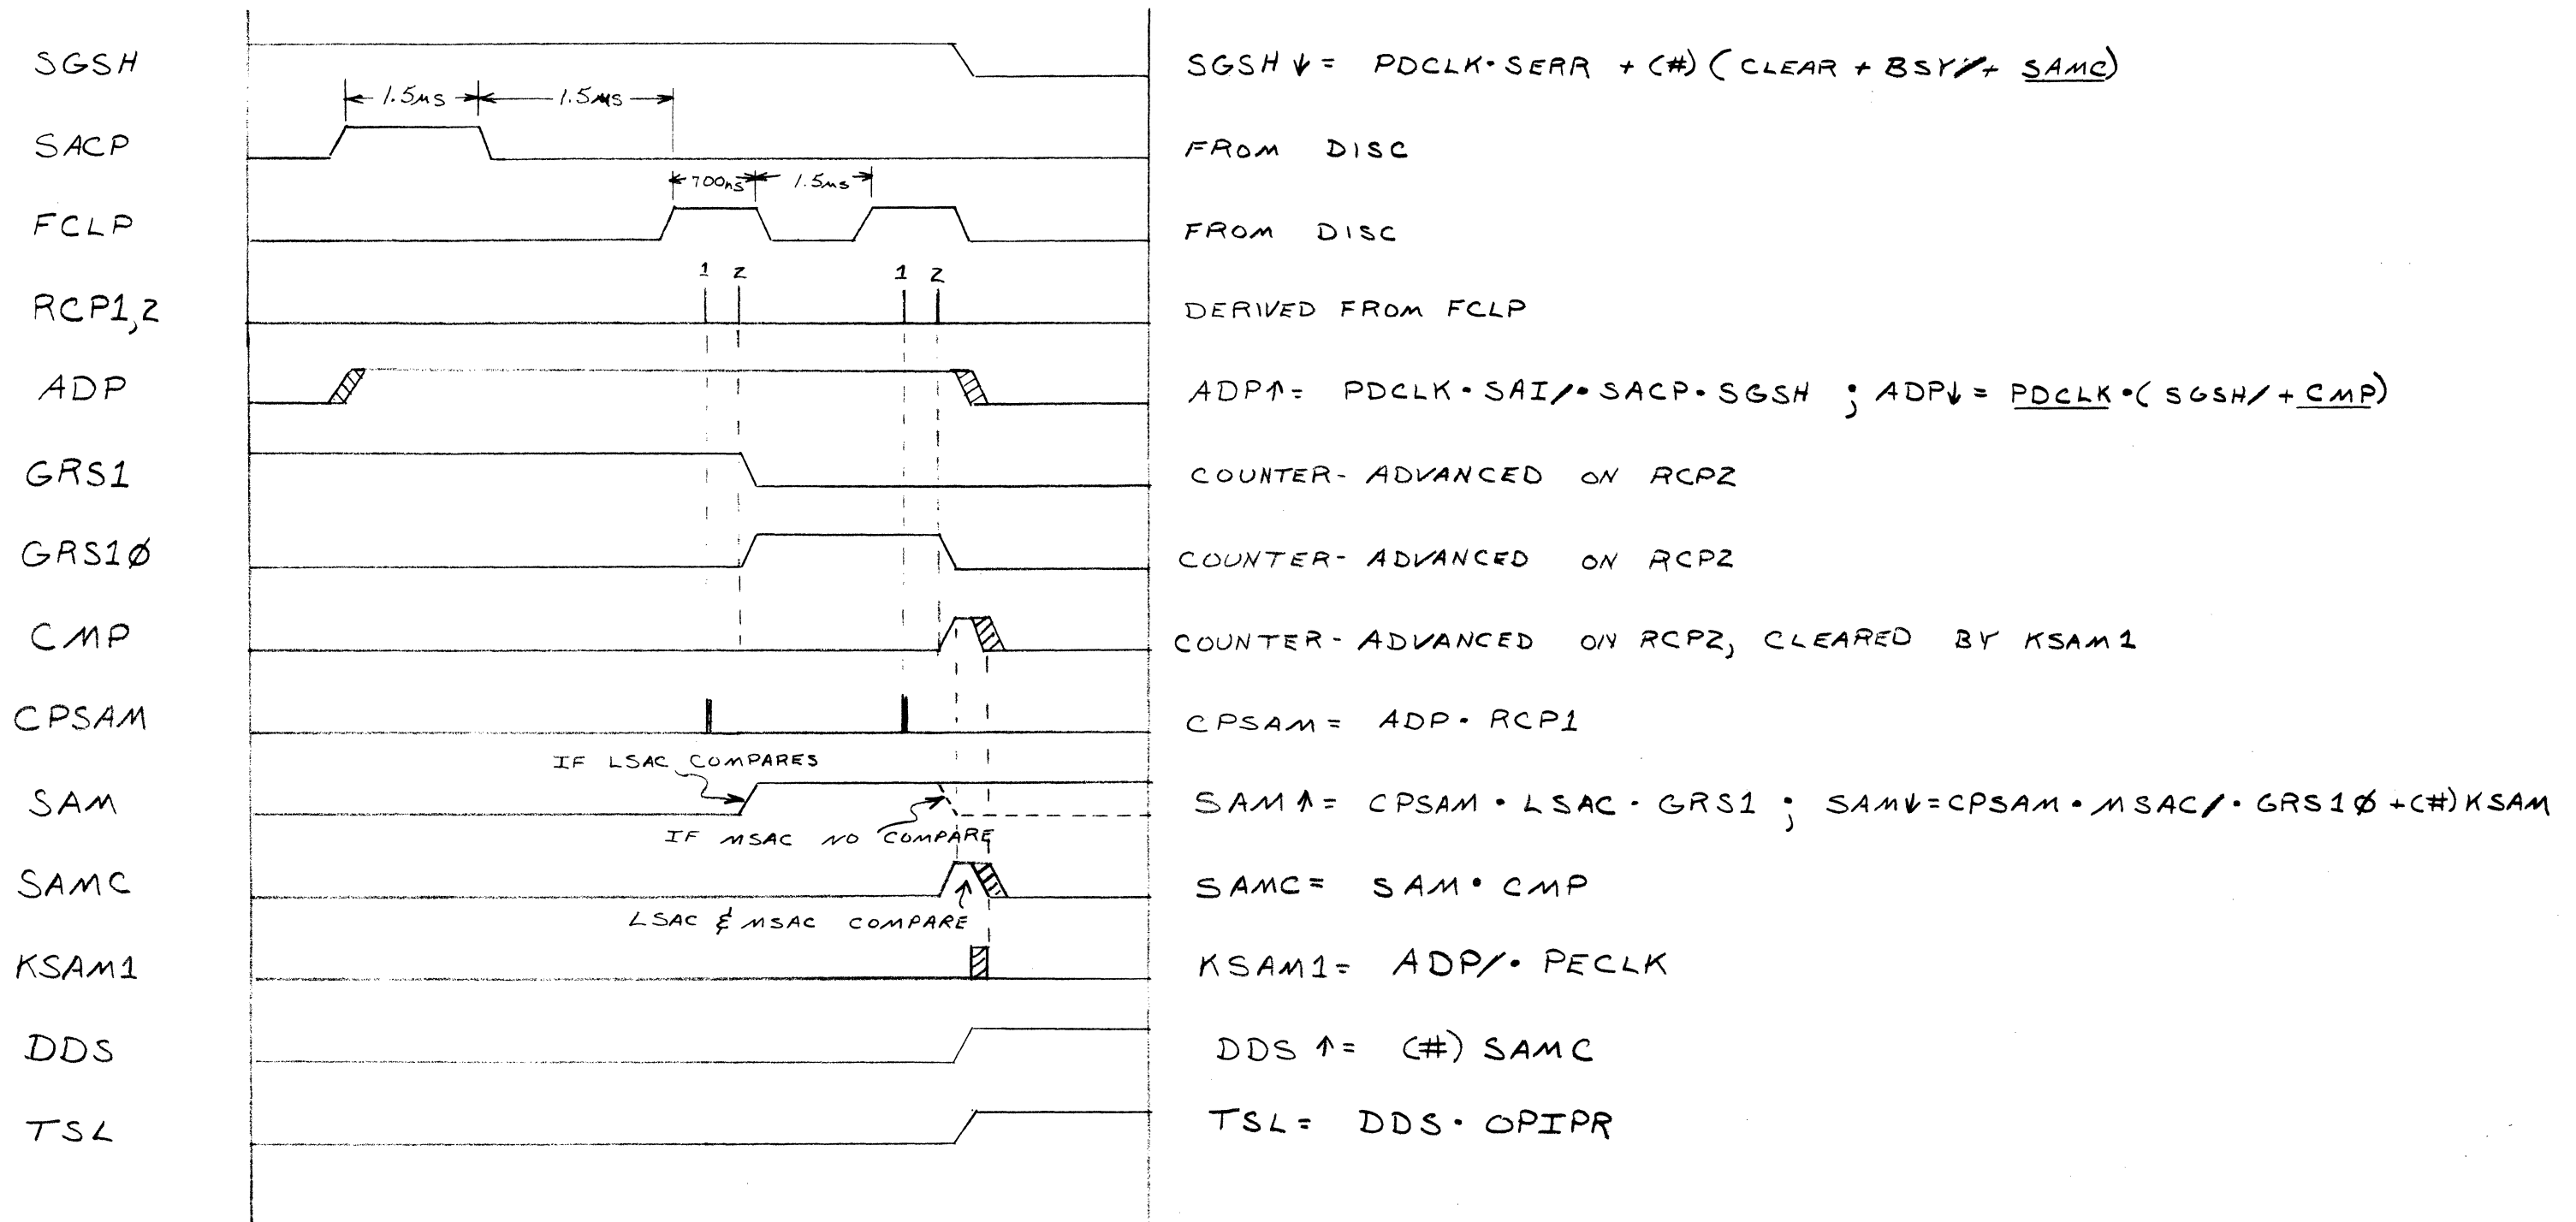 SGSH SGSH↓= PDCLK·SERR + (#) (CLEAR + BSY/+ SAMC)
1.5µs 1.5µs
SACP FROM DISC
700ns 1.5µs
FCLP FROM DISC
1 2 1 2
RCP1,2 DERIVED FROM FCLP
ADP ADP↑= PDCLK·SAI/·SACP·SGSH ; ADP↓= PDCLK·(SGSH/+CMP)
GRS1 COUNTER- ADVANCED ON RCP2
GRS1Ø COUNTER- ADVANCED ON RCP2
CMP COUNTER- ADVANCED ON RCP2, CLEARED BY KSAM1
CPSAM CPSAM= ADP·RCP1
IF LSAC COMPARES
SAM SAM↑= CPSAM·LSAC·GRS1 ; SAM↓=CPSAM·MSAC/·GRS1Ø+(#)KSAM
IF MSAC NO COMPARE
SAMC SAMC= SAM·CMP
LSAC & MSAC COMPARE
KSAM1 KSAM1= ADP/·PECLK
DDS DDS↑= (#) SAMC
TSL TSL= DDS·OPIPR